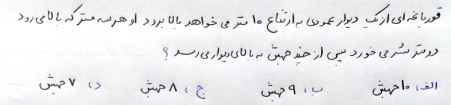 قورباغه‌ای از یک دیوار عمودی به ارتفاع ۱۰ متر می خواهد بالا برود او هر سه متر که بالا می رود
دو متر سُر می خورد پس از چند جهش به بالای دیوار می رسد ؟
الف، ۱۰ جهش ب، ۹ جهش ج، ۸ جهش د، ۷ جهش